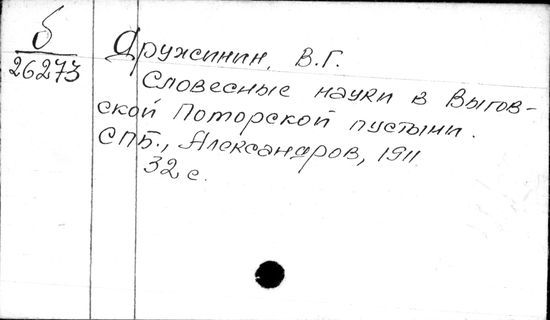 б
26273
Дружинин, В.Г.
Словесные науки в Выгов-
ской Поморской пустыни.
СПБ., Александров, 1911
32 с.